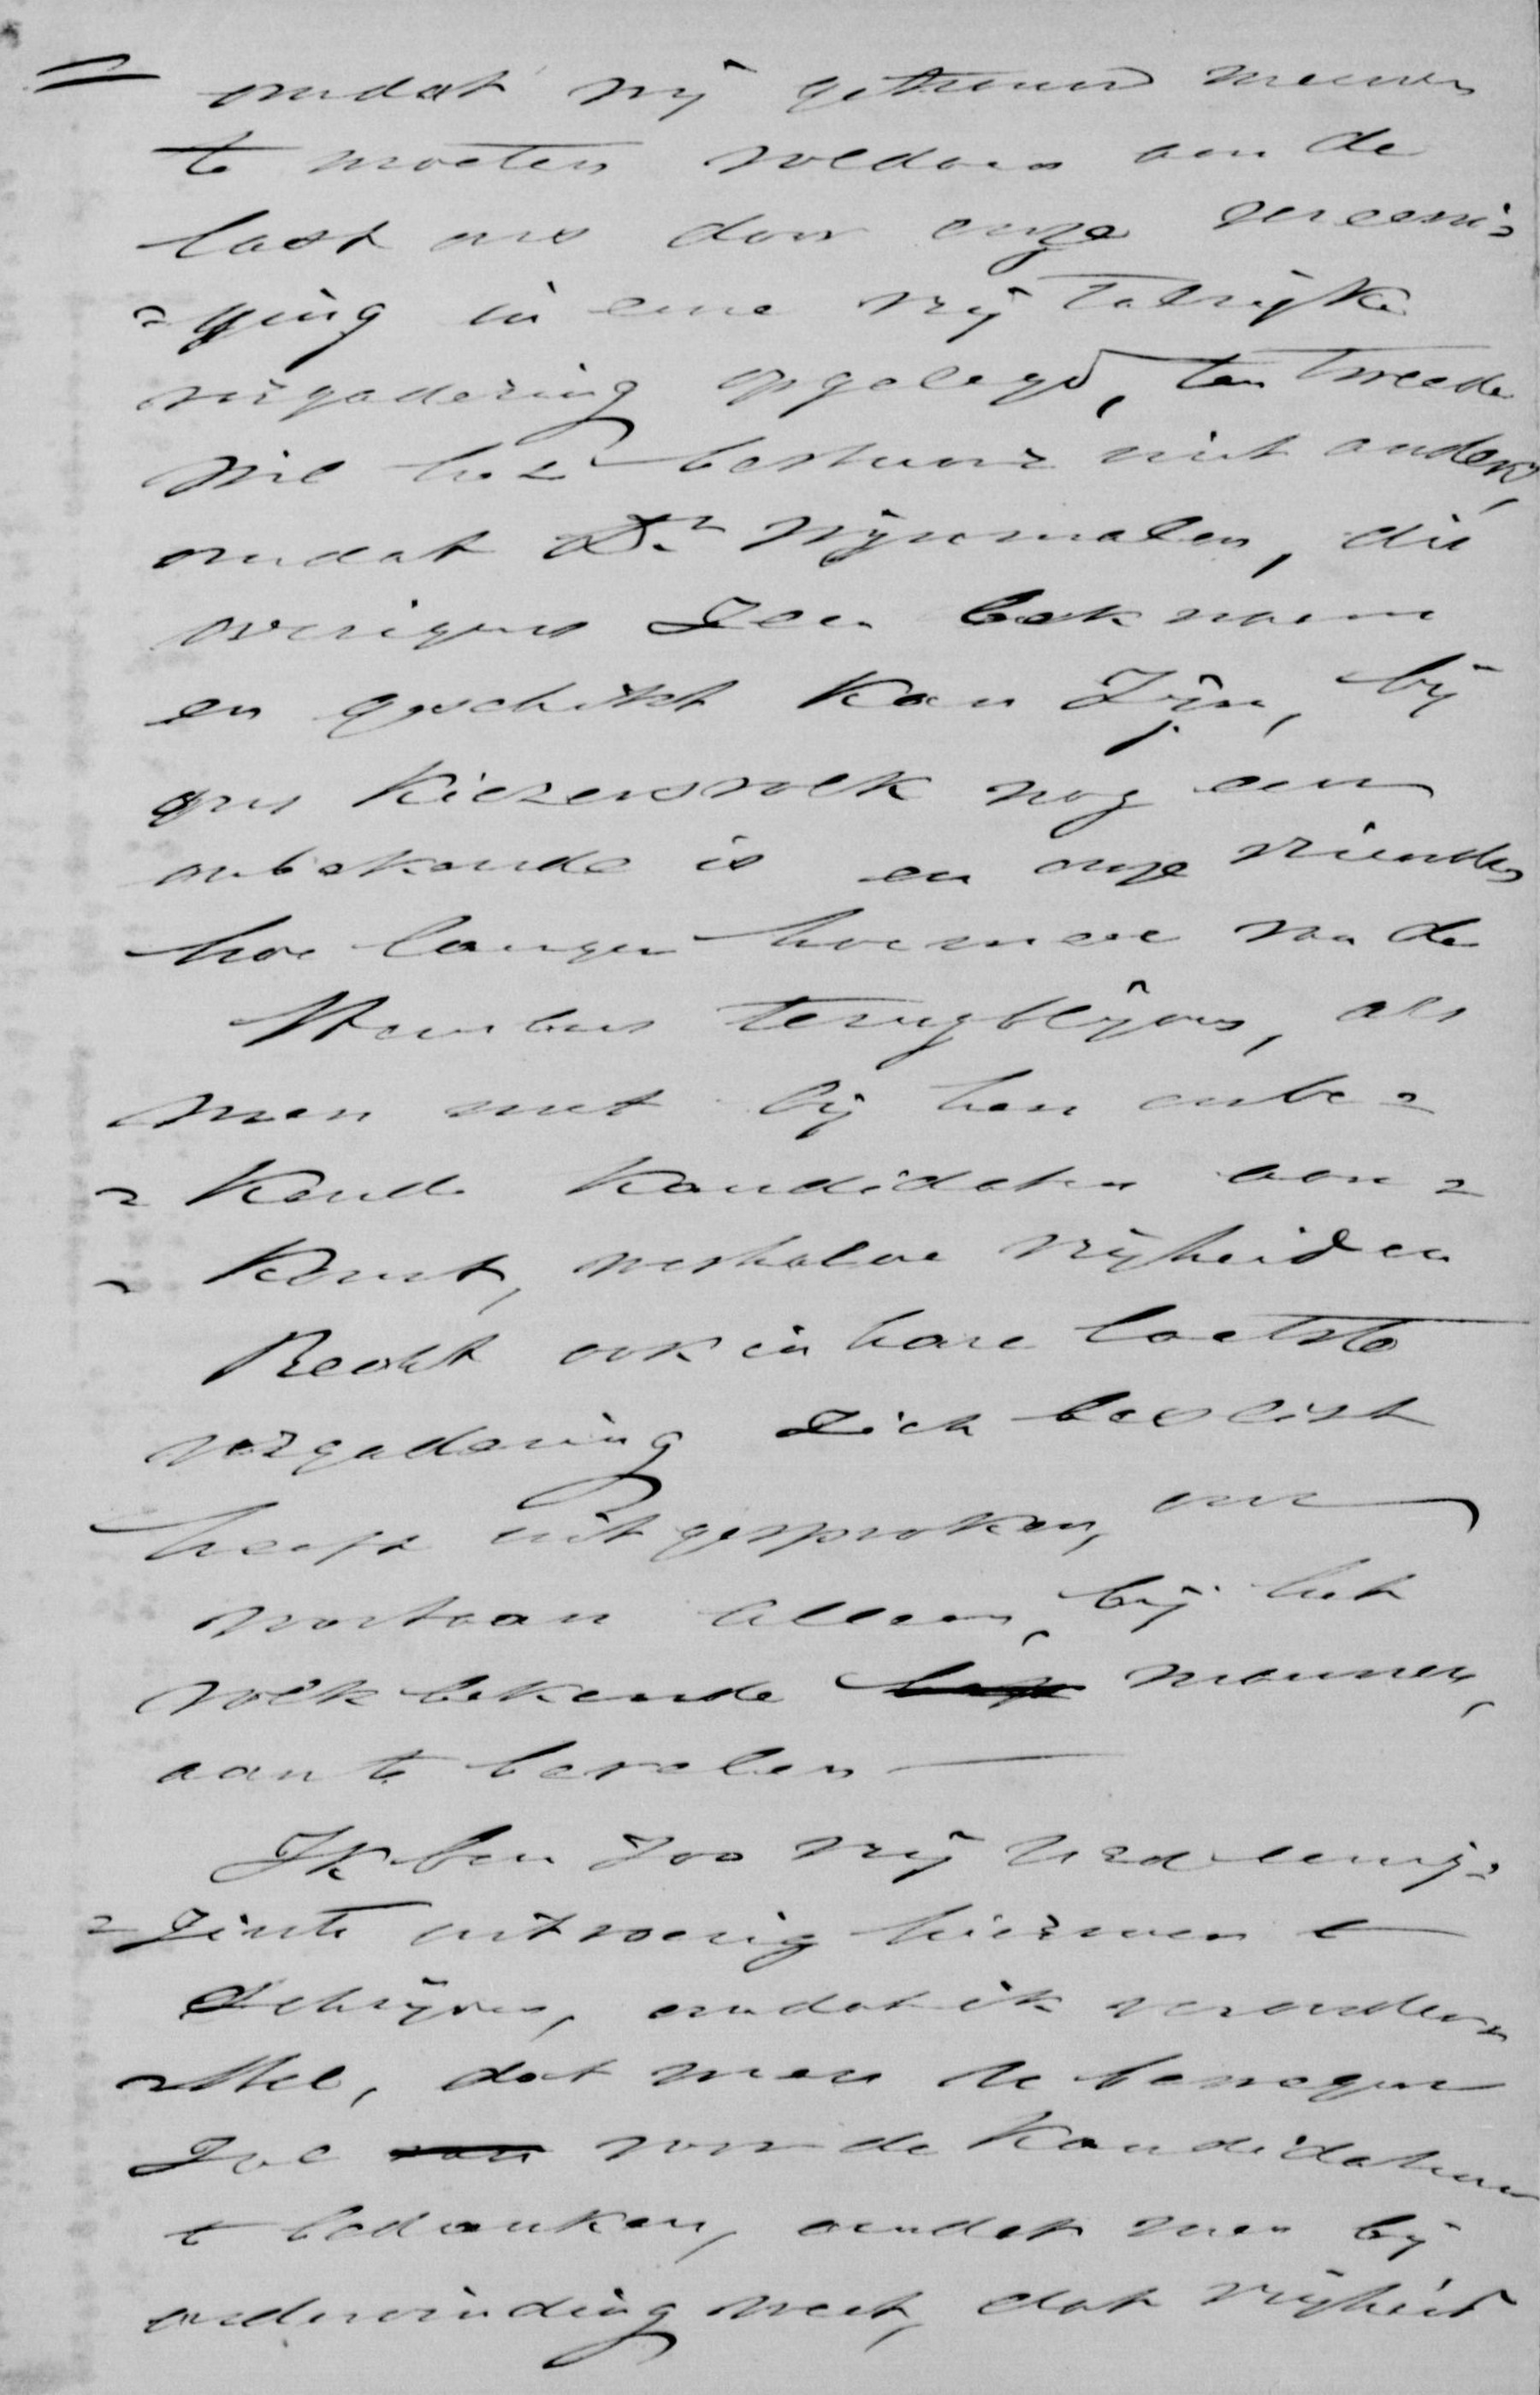 omdat wij getrouw meenen
te moeten voldoen aan de
last ons door onze vereeni=
=ging in eene vrij talrijke
vergadering opgelegd, ten tweede
wil het bestuur niet anders,
omdat Dr Nijnmalen, die
overigens zeer bekwaam
en geschikt kan zijn, bij
ons kiezersvolk nog een
onbekende is en onze vrienden
hoe langer hoe meer van de
stembus terugblijven, als
men met bij hen onbe=
=kende kandidaten aan=
=komt, weshalve Vrijheid en
Recht ook in hare laatste
vergadering zich beslist
heeft uitgesproken, om
voortaan alleen, bij het
volk bekende mannen,
aan te bevelen —
Ik ben zoo vrij UEd eenig=
=zints uitvoerig hierover te
schrijven, omdat ik veronder=
=stel, dat men U bewegen
zal voor de kandidatuur
te bedanken, omdat men bij
ondervinding weet, dat Vrijheid